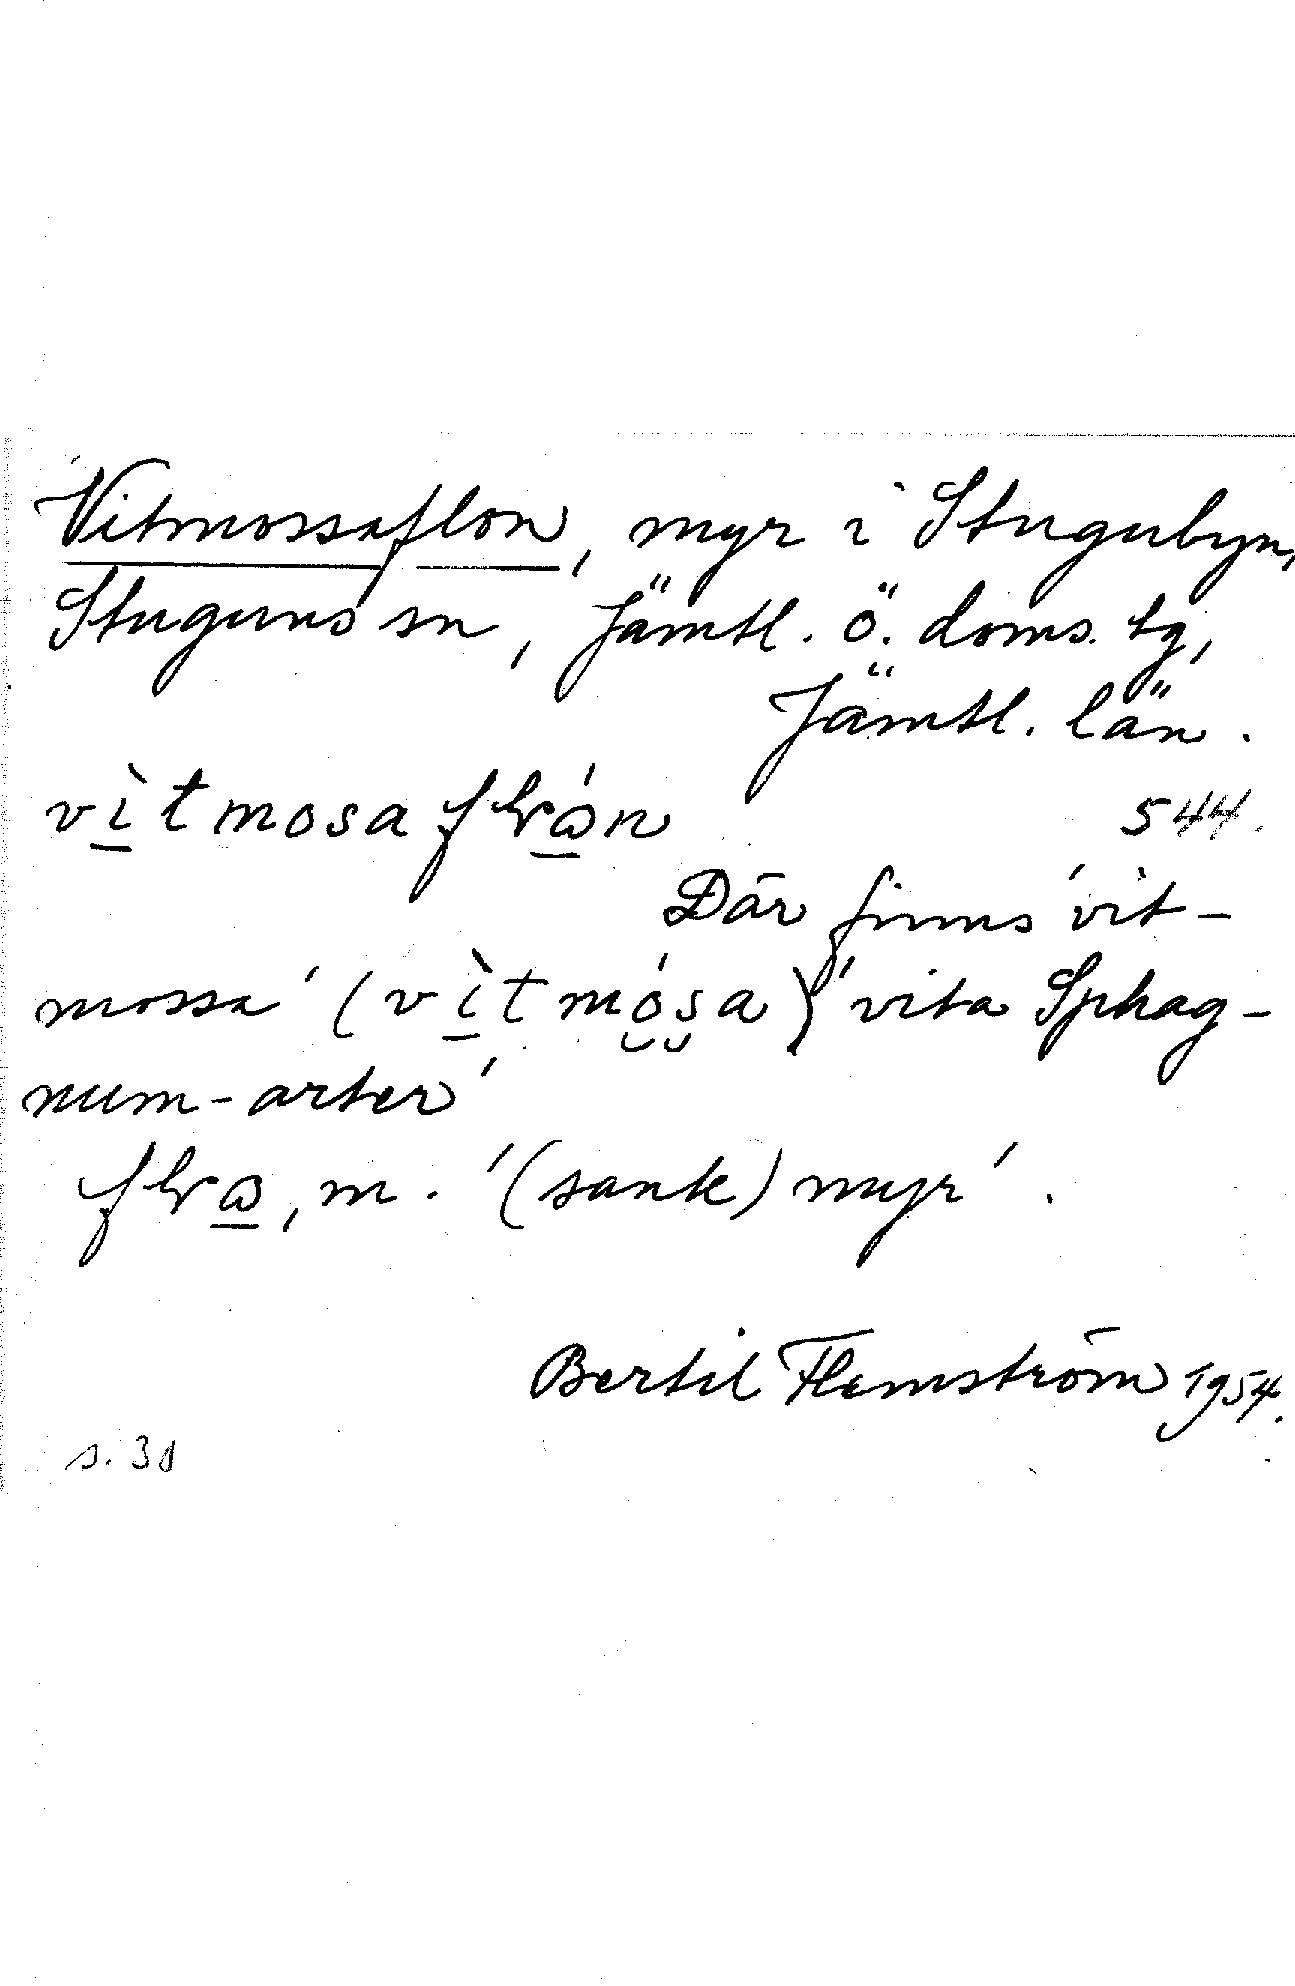 Vitmossaflon, myr i Stugubyn,
Stuguns sn, Jämtl. ö. doms. tg,
Jämtl. län.
vìtmosaflɷ́n 544.
Där finns 'vit-
mossa' (vìtmósa) 'vita Sphag-
num-arter'
flɷ, m. '(sank) myr'.
Bertil Flemström 1954.
s. 31